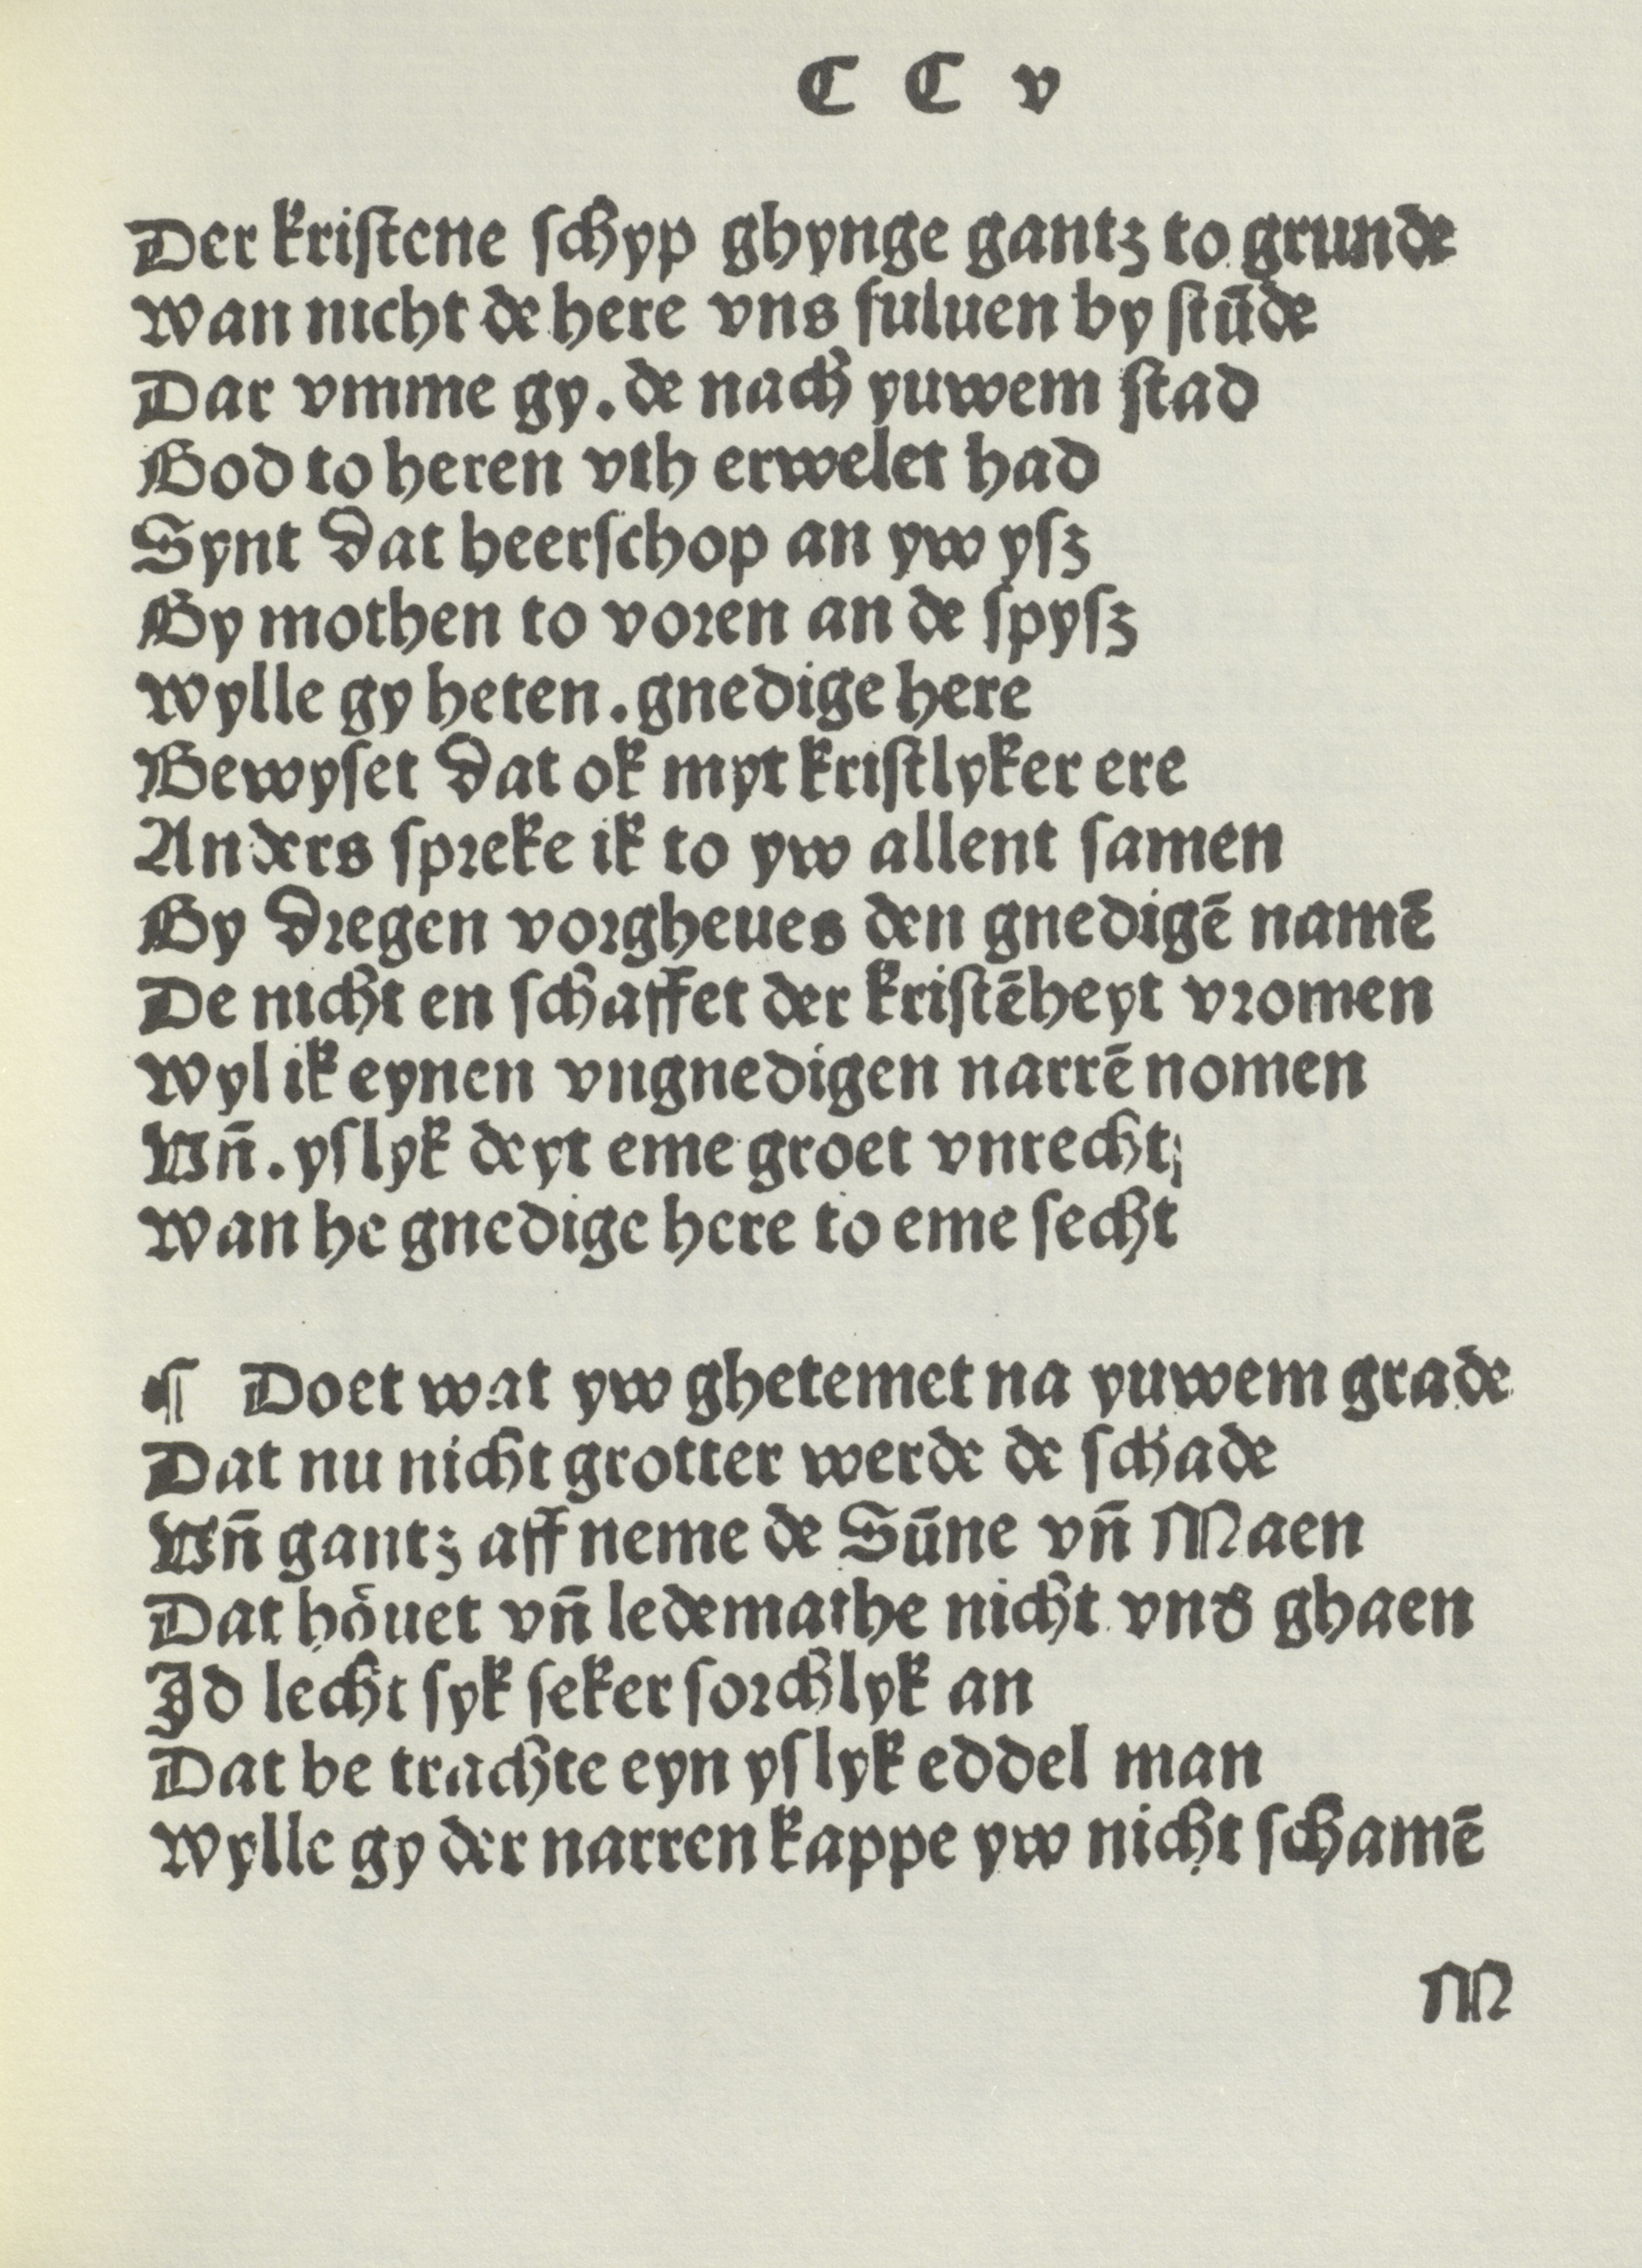 C C v
Der kristene schyp ghynge gantz to grunde
Wan nicht de here vns suluen by stūde
Dar vmme gy. de nach yuwem stad
God to heren vth erwelet had
Synt dat heerschop an yw ysz
Gy mothen to voren an de spysz
Wylle gy heten. gnedige here
Bewyset dat ok myt kristlyker ere
Anders spreke ik to yw allent samen
Gy dregen vorgheues den gnedigē namē
De nicht en schaffet der kristēheyt vromen
Wyl ik eynen vngnedigen narrē nomen
Vn̄. yslyk deyt eme groet vnrecht
Wan he gnedige here to eme secht
¶ Doet wat yw ghetemet na yuwem grade
Dat nu nicht grotter werde de schade
Vn̄ gantz aff neme de Sūne vn̄ Maen
Dat höuet vn̄ ledemathe nicht vns ghaen
Id lecht syk seker sorchlyk an
Dat be trachte eyn yslyk eddel man
Wylle gy der narren kappe yw nicht schamē
M